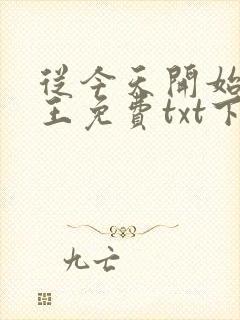 從今天開始
王免費txt下
九亡